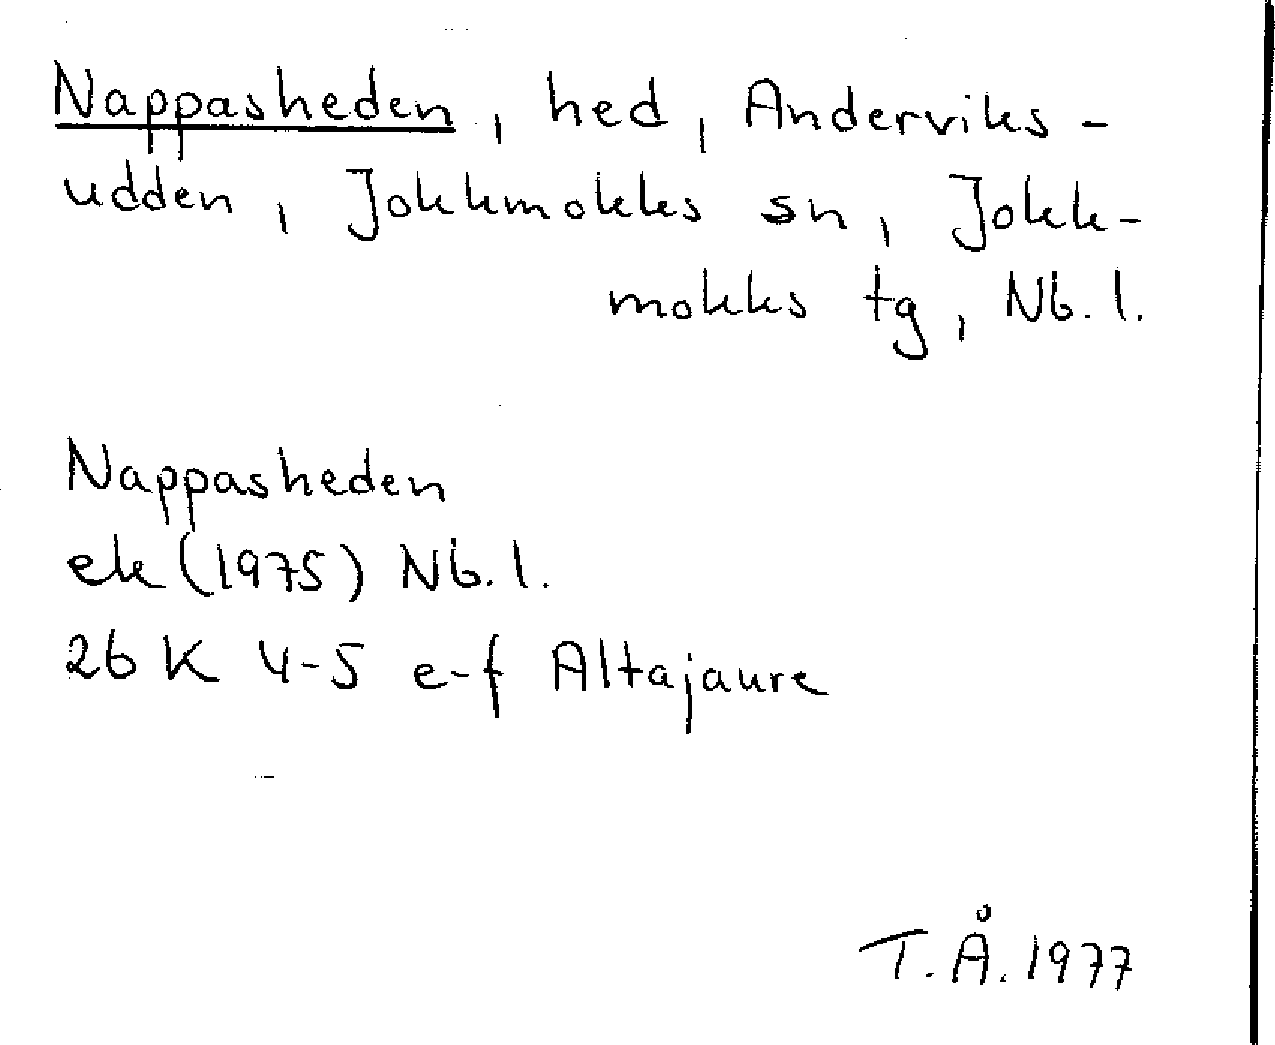 Nappasheden, hed, Anderviks-
udden, Jokkmokks sn, Jokk-
mokks tg, Nb. l.
Nappasheden
ek (1975) Nb. l.
26 K 4-5 e-f Altajaure
T. Å. 1977